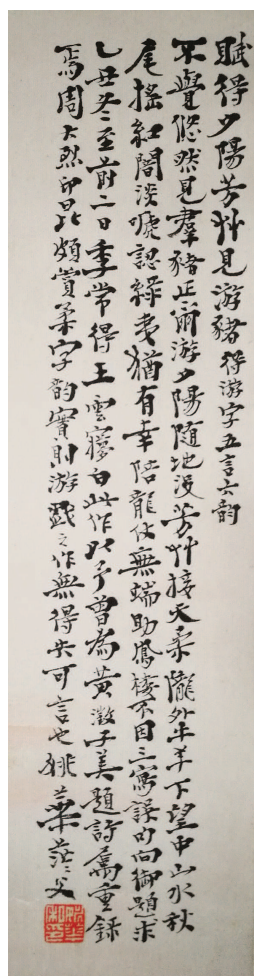 賦得夕陽芳艸見游豬 得游字五言六韵
不覺悠然見羣豬正爾游夕陽隨地没芳艸接天柔隴外牛羊下望中山水秋
尾搖紅閣淡嘑認綠夷猶有幸陪龍仗無端助鳳樓不因三寫誤向御題求
乙丑冬至前二日季常得王雲 白此作 予曾為黃澂子美題詩屬重錄
焉周大烈印昆頗賞柔字韵實則游戲之作無得失可言也姚華茫父